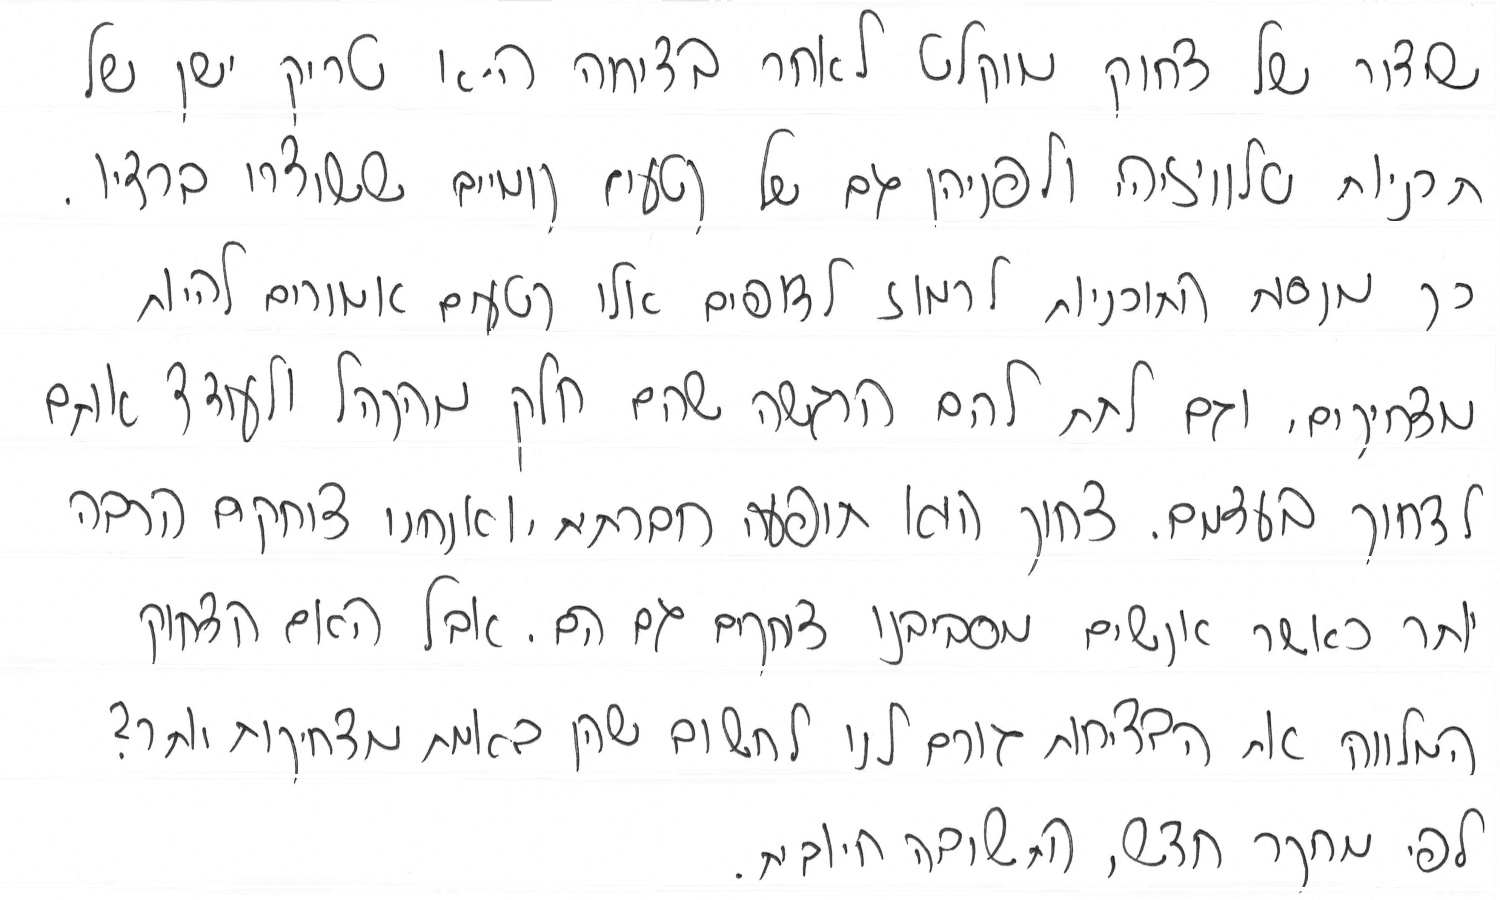 שידור של צחוק מוקלט לאחר בדיחה היא טריק ישן של
תכניות טלוויזיה ולפניהן גם של קטעים קומיים ששודרו ברדיו.
כך מנסות התוכניות לרמוז לצופים אילו קטעים אמורים להיות
מצחיקים, וגם לתת להם הרגשה שהם חלק מהקהל ולעודד אותם
לצחוק בעצמם. צחוק הוא תופעה חברתית, ואנחנו צוחקים הרבה
יותר כאשר אנשים מסביבנו צוחקים גם הם. אבל האם הצחוק
המלווה את הבדיחות גורם לנו לחשוב שהן באמת מצחיקות יותר?
לפי מחקר חדש, התשובה חיובית.